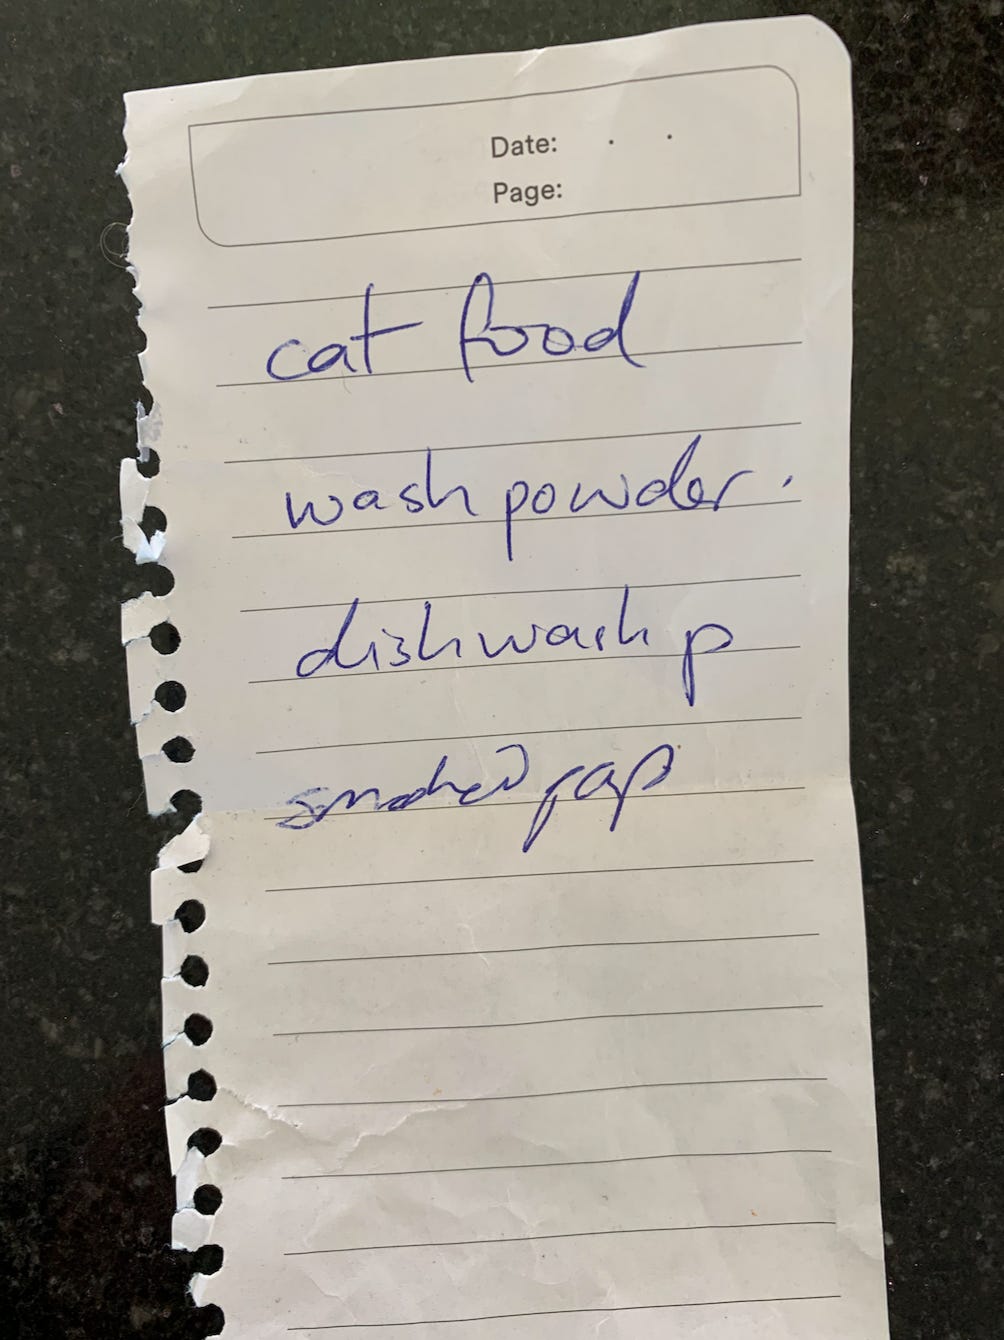 Date: . .
Page:
cat food
wash powder.
dishwash p
smoked pap